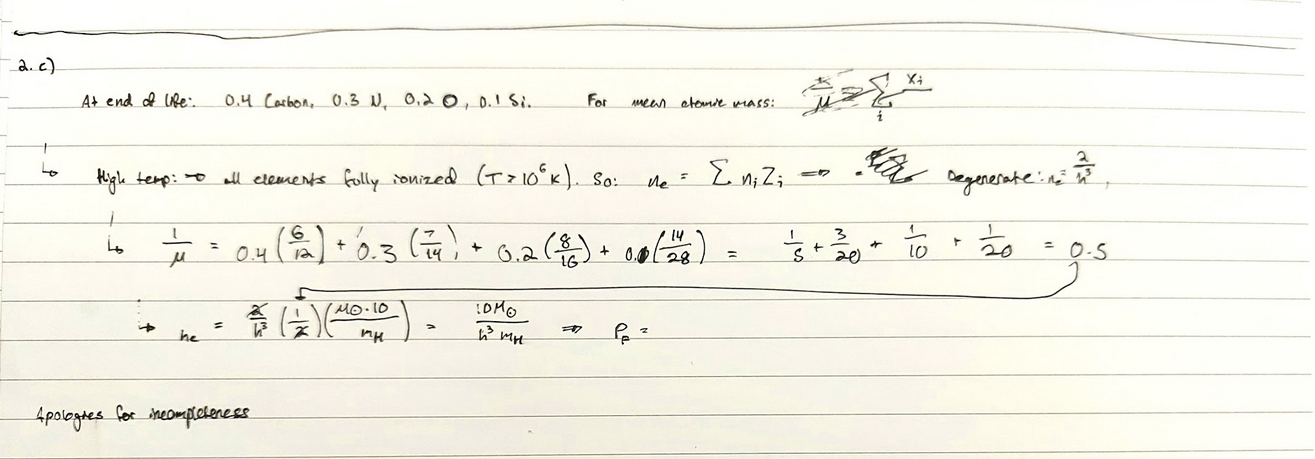 2. c)
At end of life: 0.4 Carbon, 0.3 N, 0.2 O, 0.1 Si. For mean atomic mass:
↳ High temp: → all elements fully ionized (T > 10⁶ K). So: nₑ = Σ nᵢ Zᵢ ⇒ Degenerate: nₑ = 2/h³,
↳ 1/μ = 0.4 (6/12) + 0.3 (7/14) + 0.2 (8/16) + 0.1 (14/28) = 1/5 + 3/20 + 1/10 + 1/20 = 0.5
↳ nₑ = 2/h³ (1/2) (M⊙·10/m_H) = 10M⊙/h³ m_H ⇒ Pₑ =
Apologies for incompleteness